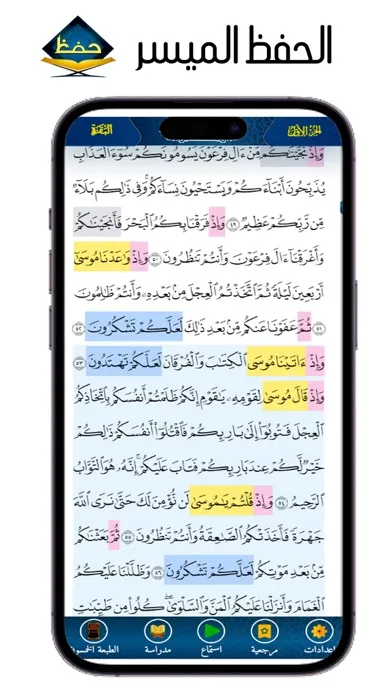 الحفظ الميسر
حفظ
الجزء الأول
البقرة
وَإِذْ نَجَّيْنَاكُم مِّنْ ءَالِ فِرْعَوْنَ يَسُومُونَكُمْ سُوٓءَ الْعَذَابِ
يُذَبِّحُونَ أَبْنَآءَكُمْ وَيَسْتَحْيُونَ نِسَآءَكُمْ وَفِى ذَٰلِكُم بَلَآءٌ
مِّن رَّبِّكُمْ عَظِيمٌ ٤٩ وَإِذْ فَرَقْنَا بِكُمُ الْبَحْرَ فَأَنجَيْنَاكُمْ
وَأَغْرَقْنَآ ءَالَ فِرْعَوْنَ وَأَنتُمْ تَنظُرُونَ ٥٠ وَإِذْ وَاعَدْنَا مُوسَىٰٓ
أَرْبَعِينَ لَيْلَةً ثُمَّ اتَّخَذْتُمُ الْعِجْلَ مِنۢ بَعْدِهِ وَأَنتُمْ ظَالِمُونَ
٥١ ثُمَّ عَفَوْنَا عَنكُم مِّنۢ بَعْدِ ذَٰلِكَ لَعَلَّكُمْ تَشْكُرُونَ ٥٢
وَإِذْ ءَاتَيْنَا مُوسَى الْكِتَابَ وَالْفُرْقَانَ لَعَلَّكُمْ تَهْتَدُونَ ٥٣
وَإِذْ قَالَ مُوسَىٰ لِقَوْمِهِ يَاقَوْمِ إِنَّكُمْ ظَلَمْتُمْ أَنفُسَكُم بِاتِّخَاذِكُمُ
الْعِجْلَ فَتُوبُوٓا إِلَىٰ بَارِئِكُمْ فَاقْتُلُوٓا أَنفُسَكُمْ ذَٰلِكُمْ
خَيْرٌ لَّكُمْ عِندَ بَارِئِكُمْ فَتَابَ عَلَيْكُمْ إِنَّهُ هُوَ التَّوَّابُ
الرَّحِيمُ ٥٤ وَإِذْ قُلْتُمْ يَامُوسَىٰ لَن نُّؤْمِنَ لَكَ حَتَّىٰ نَرَى اللَّهَ
جَهْرَةً فَأَخَذَتْكُمُ الصَّاعِقَةُ وَأَنتُمْ تَنظُرُونَ ٥٥ ثُمَّ بَعَثْنَاكُم
مِّنۢ بَعْدِ مَوْتِكُمْ لَعَلَّكُمْ تَشْكُرُونَ ٥٦ وَظَلَّلْنَا عَلَيْكُمُ
الْغَمَامَ وَأَنزَلْنَا عَلَيْكُمُ الْمَنَّ وَالسَّلْوَىٰ كُلُوا مِن طَيِّبَاتِ
إعدادات
مرجعية
استماع
مدراسة
الطبعة الخمسون